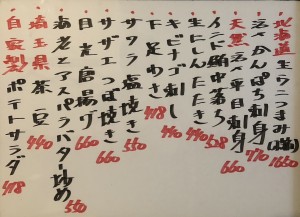 北海道生ウニつまみ(塩) 1650
活〆かんぱち刺身 770
天然活〆平目刺身 660
インド鮪中落ち 528
生にしんたたき 440
キビナゴ刺し 440
下足わさ 418
サワラ塩焼き 550
サザエつぼ焼き 660
目光唐揚げ 660
海老とアスパラバター炒め 550
埼玉県茶豆 440
自家製ポテトサラダ 418